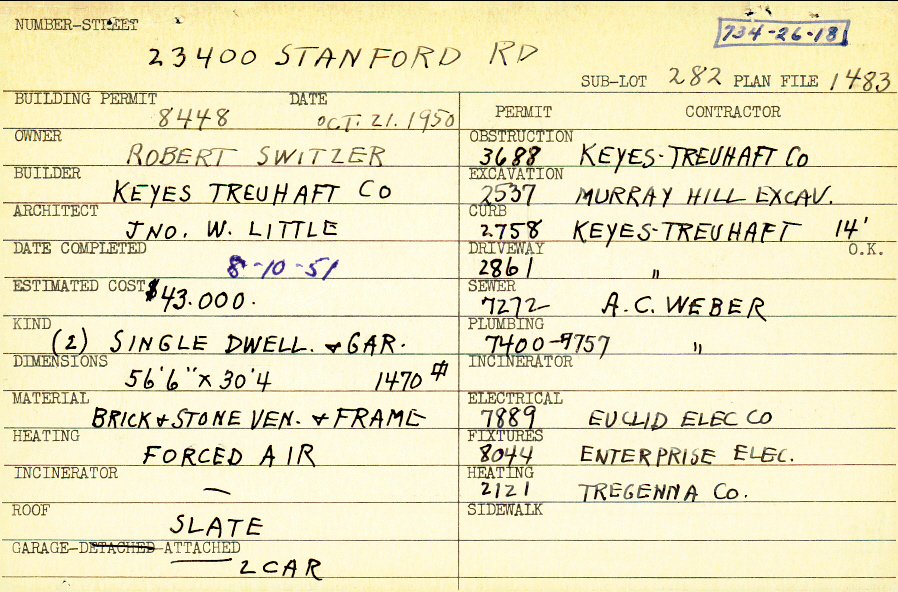 NUMBER-STREET
734-26-18
23400 STANFORD RD
SUB-LOT 282 PLAN FILE 1483
BUILDING PERMIT DATE
8448 OCT. 21. 1950
OWNER
ROBERT SWITZER
BUILDER
KEYES TREUHAFT CO
ARCHITECT
JNO. W. LITTLE
DATE COMPLETED
8-10-51
ESTIMATED COST $43.000.
KIND
(2) SINGLE DWELL. & GAR.
DIMENSIONS
56'6" x 30'4 1470 #
MATERIAL
BRICK & STONE VEN. & FRAME
HEATING
FORCED AIR
INCINERATOR
—
ROOF
SLATE
GARAGE-DETACHED-ATTACHED
2 CAR
PERMIT CONTRACTOR
OBSTRUCTION
3688 KEYES-TREUHAFT CO
EXCAVATION
2537 MURRAY HILL EXCAV.
CURB
2758 KEYES-TREUHAFT 14'
DRIVEWAY O.K.
2861 "
SEWER
7272 A.C. WEBER
PLUMBING
7400-9757 "
INCINERATOR
ELECTRICAL
7889 EUCLID ELEC CO
FIXTURES
8044 ENTERPRISE ELEC.
HEATING
2121 TREGENNA CO.
SIDEWALK